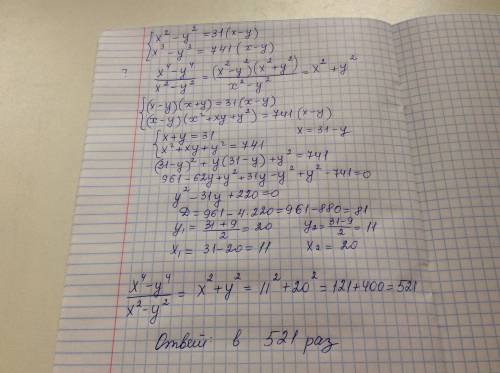 { x² - y² = 31(x-y)
x³ - y³ = 741(x-y)
? x⁴-y⁴ / x²-y² = (x²-y²)(x²+y²) / x²-y² = x² + y²
{ (x-y)(x+y) = 31(x-y)
(x-y)(x²+xy+y²) = 741(x-y)
{ x+y = 31 x = 31-y
x²+xy+y² = 741
(31-y)² + y(31-y) + y² = 741
961-62y+y²+31y-y²+y²-741=0
y²-31y+220=0
D = 961-4·220 = 961-880 = 81
y₁ = 31+9 / 2 = 20 y₂ = 31-9 / 2 = 11
x₁ = 31-20 = 11 x₂ = 20
x⁴-y⁴ / x²-y² = x²+y² = 11²+20² = 121+400 = 521
Ответ: в 521 раз